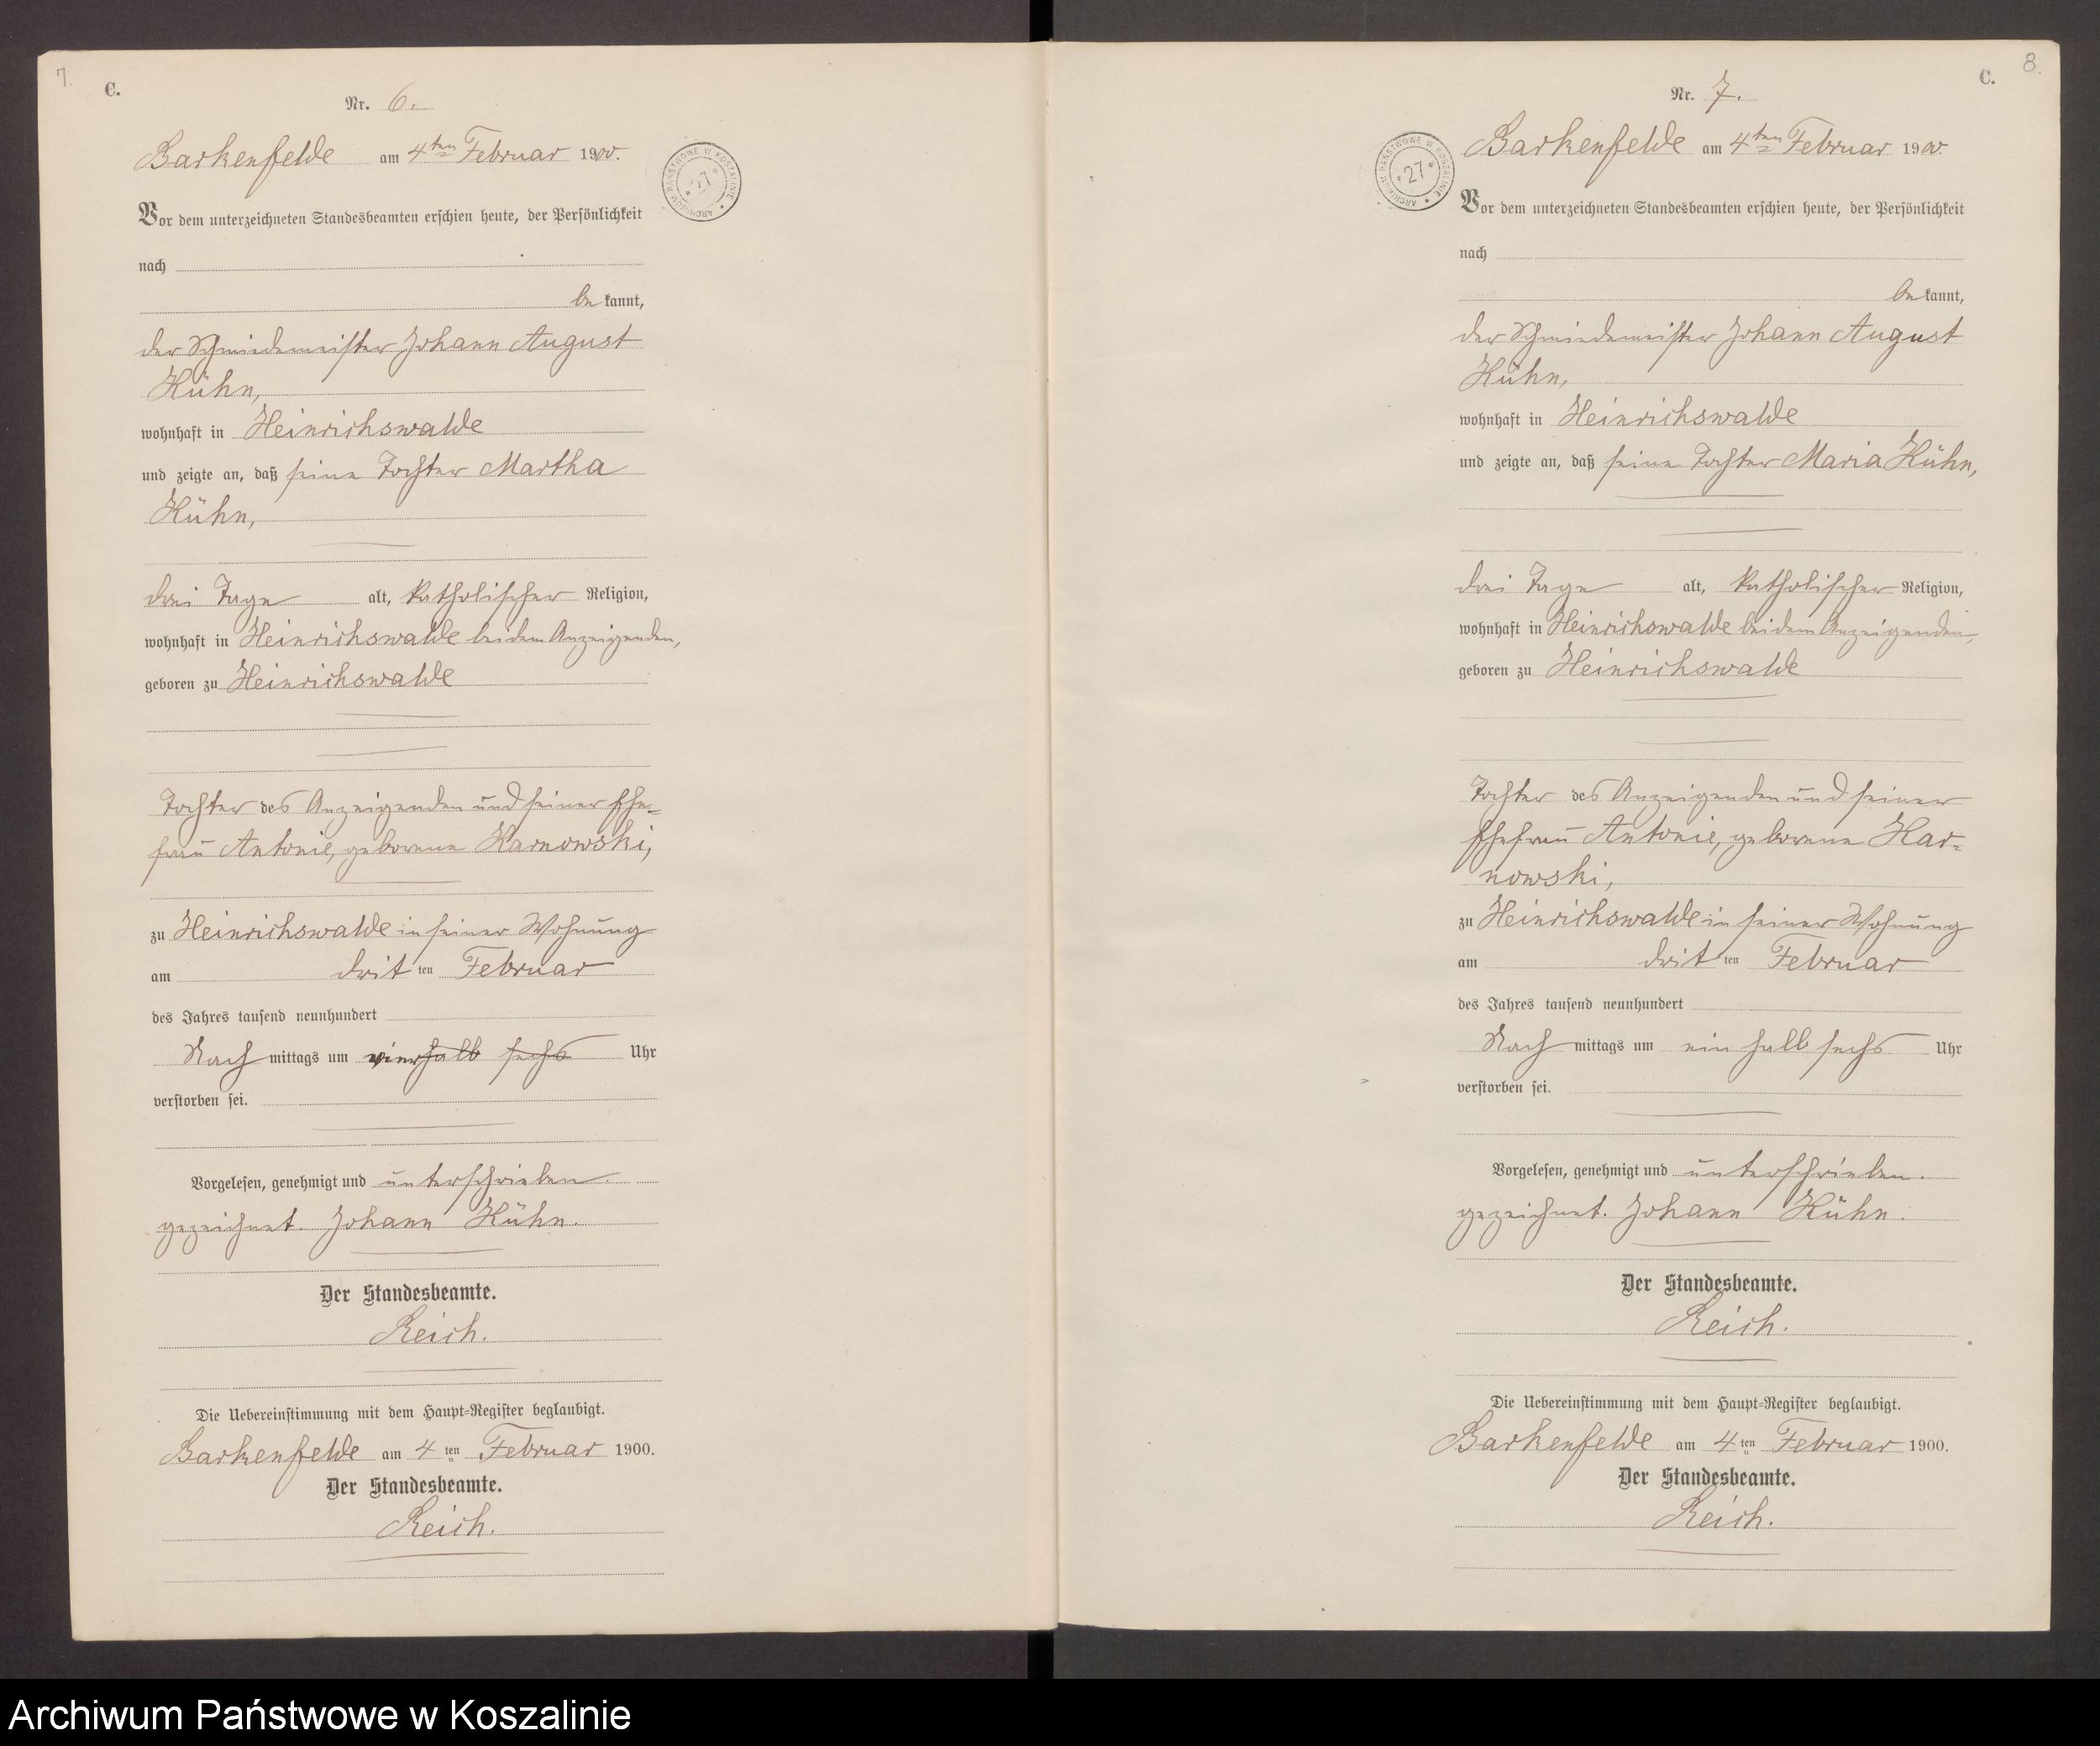 7.
C.
Nr. 6.
Barkenfelde am 4ten Februar 1900.
Vor dem unterzeichneten Standesbeamten erschien heute, der Persönlichkeit
nach
be kannt,
der Schmiedemeister Johann August
Kühn,
wohnhaft in Heinrichswalde
und zeigte an, daß seine Tochter Martha
Kühn,
drei Tage alt, katholischer Religion,
wohnhaft in Heinrichswalde bei dem Anzeigenden,
geboren zu Heinrichswalde
Tochter des Anzeigenden und seiner Ehe=
frau Antonie, geborene Karnowski,
zu Heinrichswalde in seiner Wohnung
am drit ten Februar
des Jahres tausend neunhundert
Nach mittags um vier halb sechs Uhr
verstorben sei.
Vorgelesen, genehmigt und unterschrieben.
gezeichnet. Johann Kühn.
Der Standesbeamte.
Reich.
Die Uebereinstimmung mit dem Haupt=Register beglaubigt.
Barkenfelde am 4 ten Februar 1900.
Der Standesbeamte.
Reich.
ARCHIWUM PAŃSTWOWE W KOSZALINIE
* 27 *
8.
C.
Nr. 7.
Barkenfelde am 4ten Februar 1900.
Vor dem unterzeichneten Standesbeamten erschien heute, der Persönlichkeit
nach
be kannt,
der Schmiedemeister Johann August
Kühn,
wohnhaft in Heinrichswalde
und zeigte an, daß seine Tochter Maria Kühn,
drei Tage alt, katholischer Religion,
wohnhaft in Heinrichswalde bei dem Anzeigenden,
geboren zu Heinrichswalde
Tochter des Anzeigenden und seiner
Ehefrau Antonie, geborene Kar=
nowski,
zu Heinrichswalde in seiner Wohnung
am drit ten Februar
des Jahres tausend neunhundert
Nach mittags um ein halb sechs Uhr
verstorben sei.
Vorgelesen, genehmigt und unterschrieben.
gezeichnet. Johann Kühn.
Der Standesbeamte.
Reich.
Die Uebereinstimmung mit dem Haupt=Register beglaubigt.
Barkenfelde am 4 ten Februar 1900.
Der Standesbeamte.
Reich.
ARCHIWUM PAŃSTWOWE W KOSZALINIE
* 27 *
Archiwum Państwowe w Koszalinie